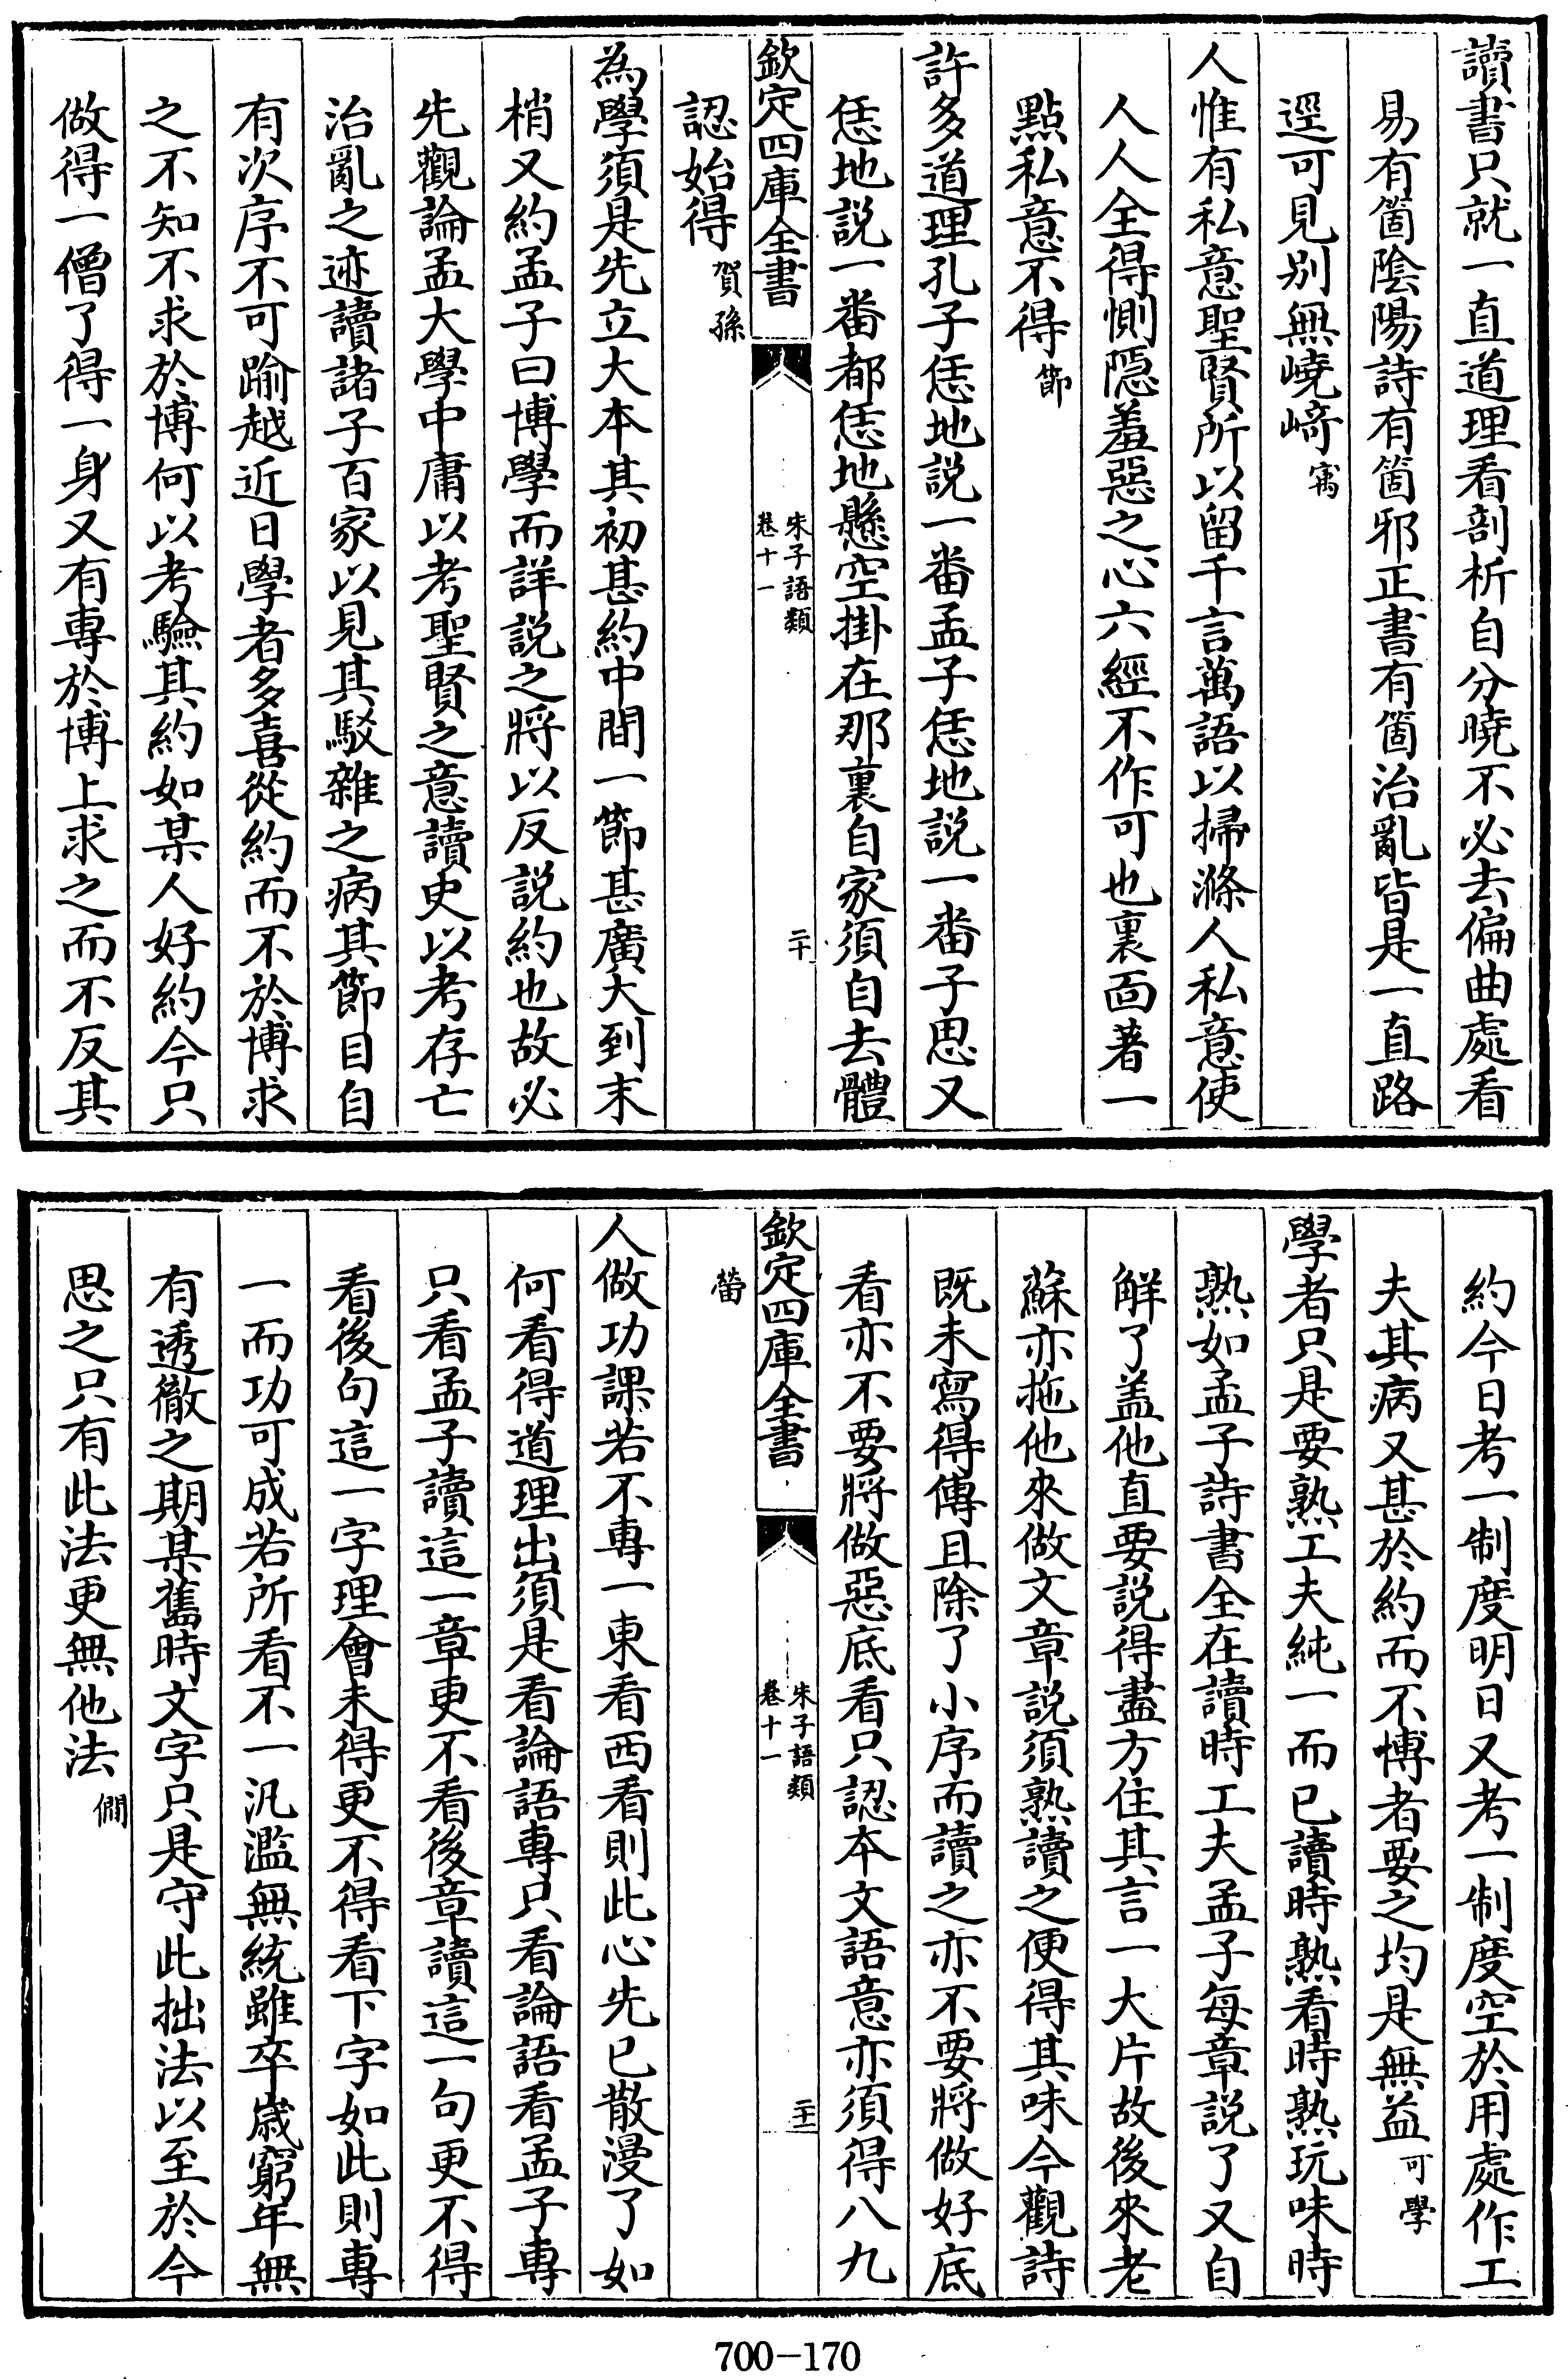 讀書只就一直道理看剖析自分曉不必去偏曲處看
易有箇陰陽詩有箇邪正書有箇治亂皆是一直路
逕可見别無嶢崎㝢
人惟有私意聖賢所以留千言萬語以掃滌人私意使
人人全得惻隠羞惡之心六經不作可也裏面著一
點私意不得節
許多道理孔子恁地説一番孟子恁地説一番子思又
恁地説一番都恁地懸空掛在那裏自家須自去體
欽定四庫全書
朱子語類
卷十一
二十
認始得賀孫
為學須是先立大本其初甚約中間一節甚廣大到末
梢又約孟子曰博學而詳説之將以反説約也故必
先觀論孟大學中庸以考聖賢之意讀史以考存亡
治亂之迹讀諸子百家以見其駁雜之病其節目自
有次序不可踰越近日學者多喜從約而不於博求
之不知不求於博何以考驗其約如某人好約今只
做得一僧了得一身又有專於博上求之而不反其
約今日考一制度明日又考一制度空於用處作工
夫其病又甚於約而不博者要之均是無益可學
學者只是要熟工夫純一而已讀時熟看時熟玩味時
熟如孟子詩書全在讀時工夫孟子每章説了又自
解了盖他直要説得盡方住其言一大片故後來老
蘇亦拖他來做文章説須熟讀之便得其味今觀詩
既未寫得傳且除了小序而讀之亦不要將做好底
看亦不要將做惡底看只認本文語意亦須得八九
欽定四庫全書
朱子語類
卷十一
二十一
㽦
人做功課若不專一東看西看則此心先已散漫了如
何看得道理出須是看論語專只看論語看孟子專
只看孟子讀這一章更不看後章讀這一句更不得
看後句這一字理會未得更不得看下字如此則專
一而功可成若所看不一汎濫無統雖卒歲窮年無
有透徹之期某舊時文字只是守此拙法以至於今
思之只有此法更無他法僩
700-170